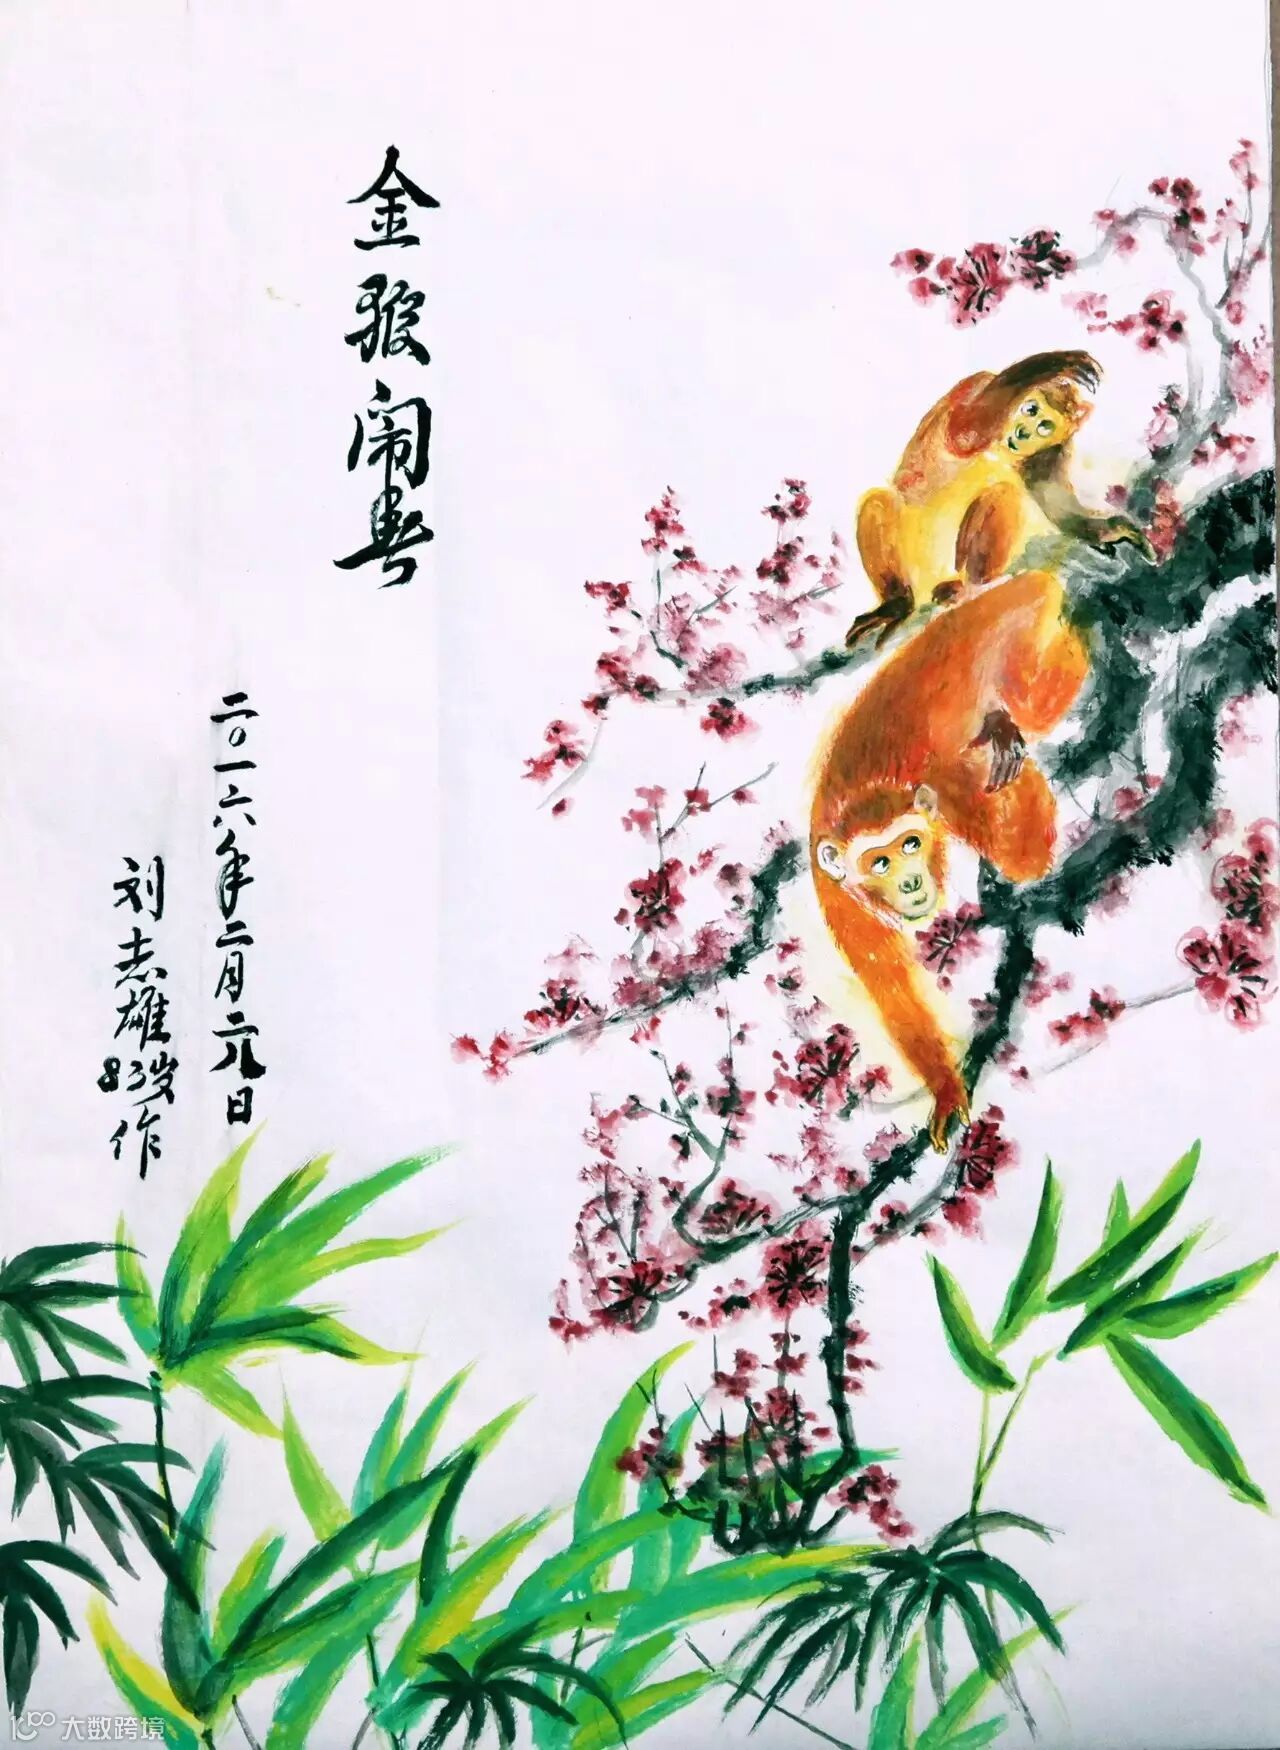 金猴闹春
二〇一六年二月二八日
刘志雄83岁作
大数跨境